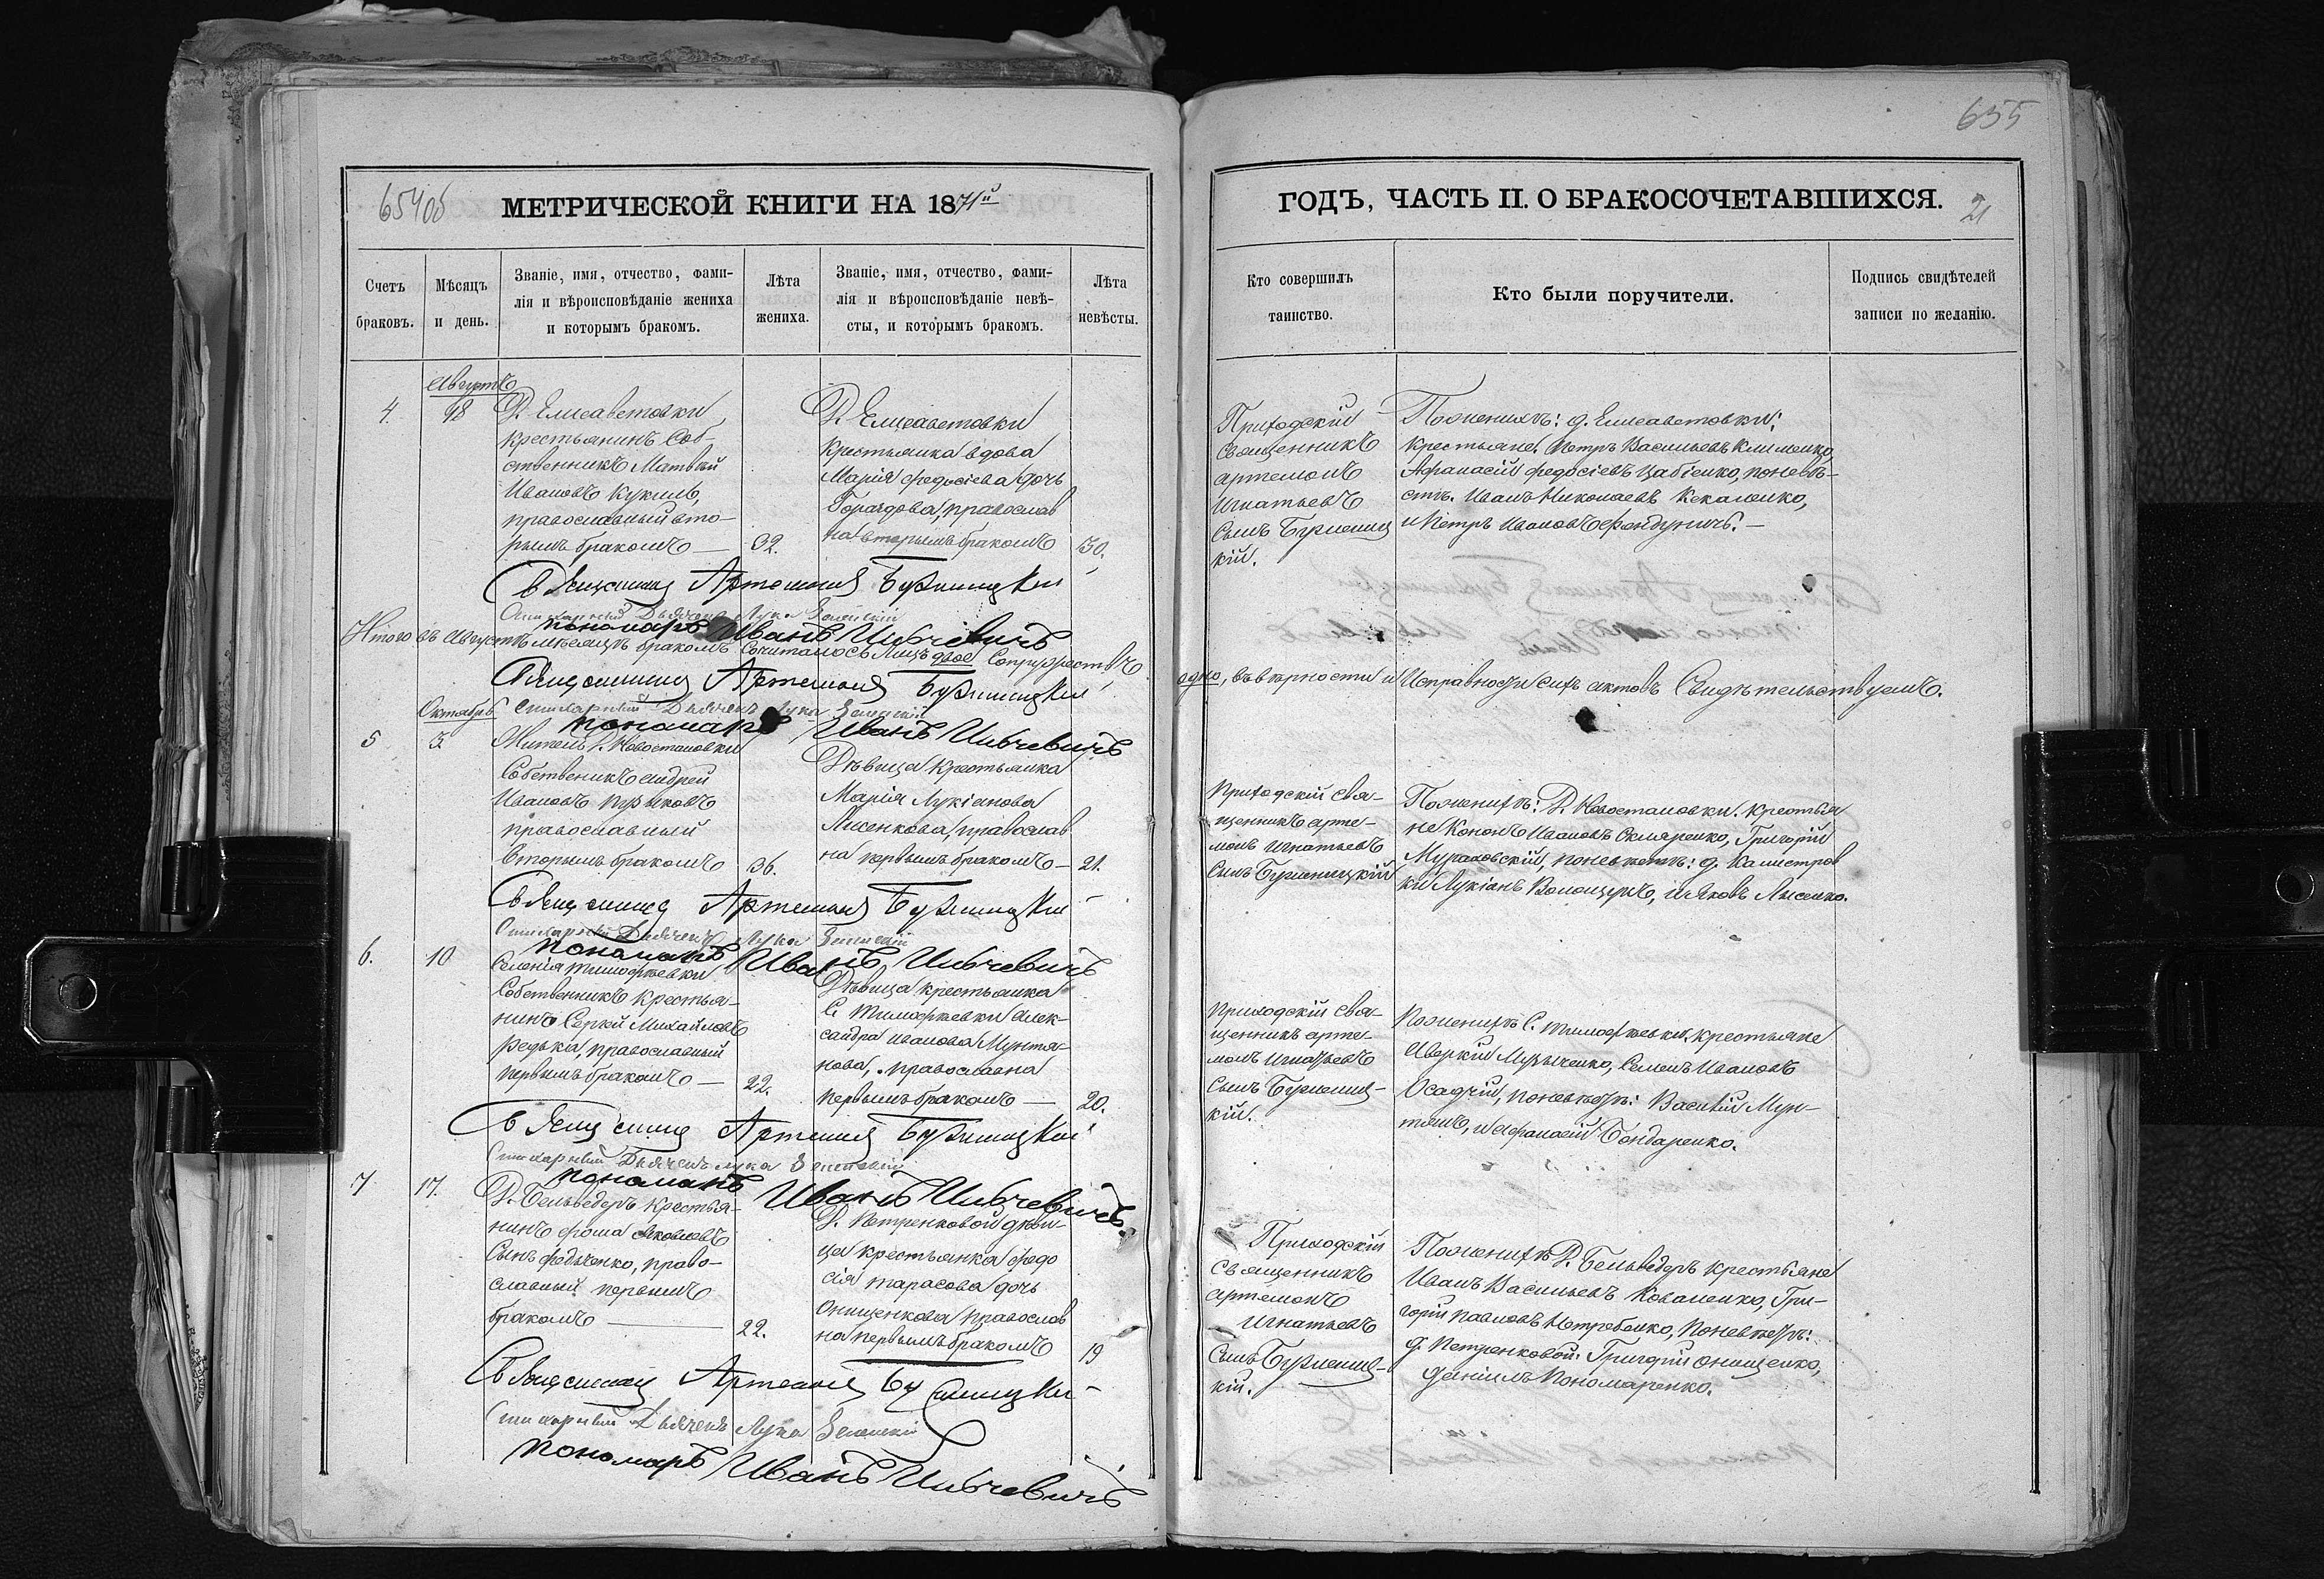 655
654 об
МЕТРИЧЕСКОЙ КНИГИ НА 1871й
ГОДЪ, ЧАСТЬ II. О БРАКОСОЧЕТАВШИХСЯ.
21
Счетъ
браковъ.
Мѣсяцъ
и день.
Званіе, имя, отчество, фами-
лія и вѣроисповѣданіе жениха
и которымъ бракомъ.
Лѣта
жениха.
Званіе, имя, отчество, фами-
лія и вѣроисповѣданіе невѣ-
сты, и которымъ бракомъ.
Лѣта
невѣсты.
Кто совершилъ
таинство.
Кто были поручители.
Подпись свидѣтелей
записи по желанію.
Августъ
4.
Д. Елисаветовки
крестьянинъ Соб-
ственникъ Матвѣй
Ивановъ
православный вто-
рымъ бракомъ
32.
Д. Елисаветовки
крестьянка вдова
Марія Федосіева дочь
православ
на вторымъ бракомъ
30.
Приходскій
Священникъ
Артемонъ
Игнатьевъ
Сынъ
кій.
По женихѣ: д. Елисаветовки:
крестьяне. Петръ Васильевъ Клименко,
Афанасій Федосіевъ поневѣ-
стѣ. Иванъ Николаевъ
и Петръ Ивановъ
Священникъ Артемонъ
Стихарный Дьячекъ Лука
пономарь Иванъ
Итого въ Августѣ мѣсяцѣ бракомъ Сочиталось Лицъ двое Супружествъ
одно, въ вѣрности и Исправности сихъ актовъ Свидѣтельствуемъ.
Священникъ Артемонъ
Стихарный Дьячекъ Лука
пономарь Иванъ
Октябрь
5
3
Житель Д. Новостановки
Собственикъ Андрей
Ивановъ
православный
вторымъ бракомъ
36.
Дѣвица крестьянка
Марія Лукіанова
Лисенкова, православ
на первымъ бракомъ
21.
Приходскій свя-
щенникъ Арте-
монъ Игнатьевъ
Сынъ
По женихѣ: Д. Новостановки. крестья
не Кононъ Ивановъ Скляренко, Григорій
Мураховскій, поневѣстѣ: д. Калистров
ки Лукіанъ Волощукъ, и Яковъ Лисенко.
Священникъ Артемонъ
Стихарный Дьячекъ Лука
пономарь Иванъ
6.
10
Селенія Тимофѣевки
Собственникъ крестья-
нинъ Сергѣй Михайловъ
редька, православный
первымъ бракомъ
22.
Дѣвица крестьянка
С. Тимофѣевки Алек-
сандра Иванова Мунтя-
нова, православна
первымъ бракомъ
20.
Приходскій свя-
щенникъ Арте-
монъ Игнатьевъ
Сынъ
кій.
По женихѣ С. Тимофѣевки. крестьяне
Аверкій Семенъ Ивановъ
Осадчій, поневѣстѣ: Василій Мун-
тянъ, и Афанасій Бондаренко.
Священникъ Артемонъ
Стихарный Дьячекъ Лука
пономарь Иванъ
7
17.
Д. Бельведеръ крестья-
нинъ Фома Яковлевъ
Сынъ Федченко, право-
славный первымъ
бракомъ
22.
Д. Петренковой дѣви-
ца крестьянка Федо
сія Тарасова дочь
Онищенкова православ
на первымъ бракомъ
19
Приходскій
Священникъ
Артемонъ
Игнатьевъ
Сынъ
кій.
По женихѣ Д. Бельведеръ крестьяне
Иванъ Васильевъ Коваленко, Гри-
горій Павловъ Нетребенко, поневѣстѣ:
д. Петренковой: Григорій Онищенко,
Даніилъ Пономаренко.
Священникъ Артемонъ
Стихарный Дьячекъ Лука
пономарь Иванъ